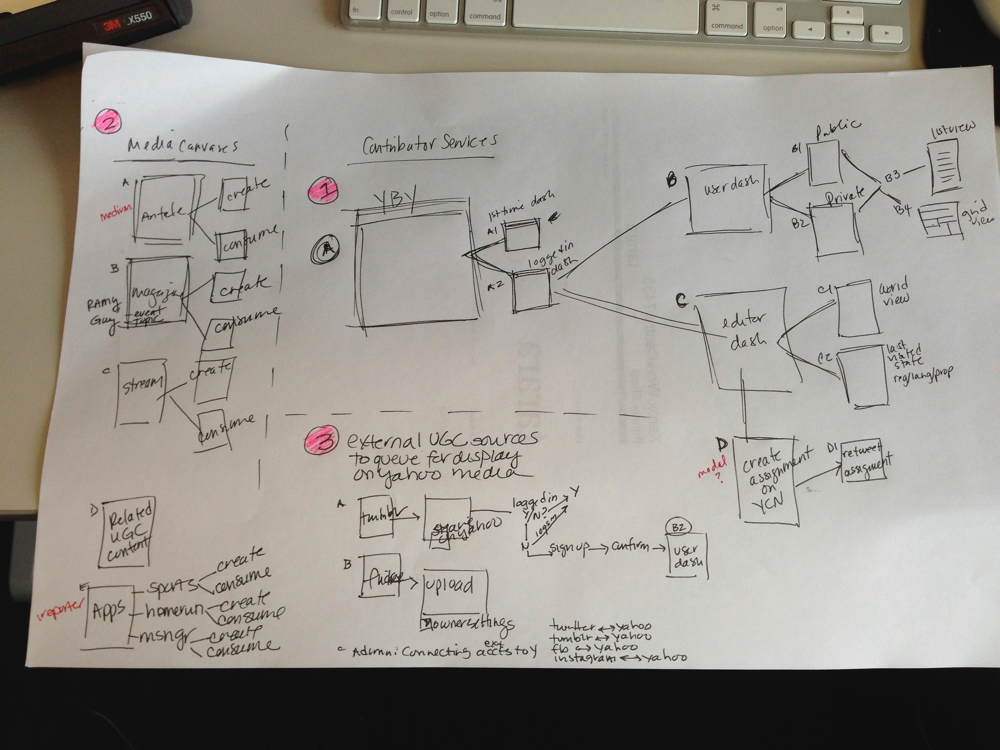 3M X550
fn
control
option
command
command
option
2
Media Canvases
A
Medium
create
consume
B
magazine
event
topic
Guy
create
consume
C
stream
create
consume
D
Related
UGC
content
E
ireporter
Apps
sports
create
consume
homerun
create
consume
msngr
create
consume
Contributor Services
1
YBY
A
1st time dash
A1
logged in
dash
A2
B
user dash
Public
B1
Private
B2
B3
listview
B4
grid
view
C
editor
dash
C1
world
view
C2
last
visited
state
reg/lang/prop
D
model
?
create
assignment
on
YCN
D1
retweet
assigment
3
external UGC sources
to queue for display
on yahoo media
A
tumblr
share
on yahoo
logged in
Y/N?
Y
login
N
sign up
confirm
B2
user
dash
B
upload
owner settings
C
Connecting ext accts to Y
twitter ↔ yahoo
tumblr ↔ yahoo
fb ↔ yahoo
instagram ↔ yahoo